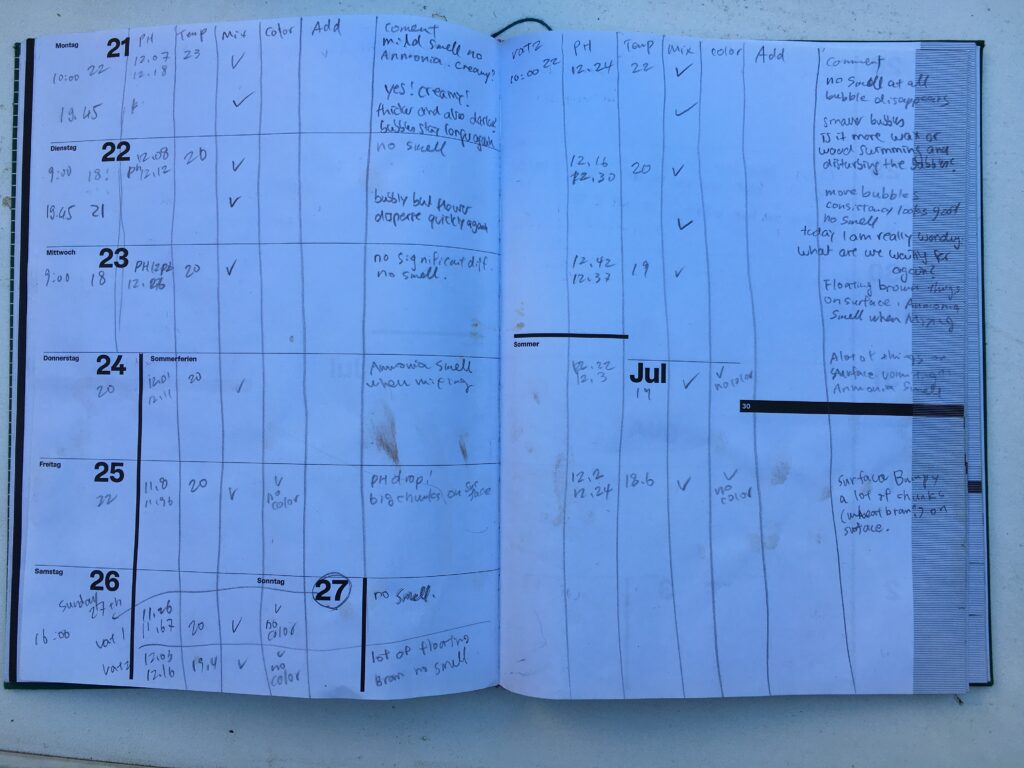 Montag 21 PH Temp Mix Color Add coment
10:00 22 12.07 23 ✓ mild smell no
12.18 Ammonia. Creamy?
19.45 ✓ yes! Creamy!
thicker and also darker
bubbles stay longer again
Dienstag 22 12.08 20 ✓ no smell
9:00 18 PH12.12
19.45 21 ✓ bubbly but flower
disperse quickly again
Mittwoch 23 no significant diff.
9:00 18 20 ✓ no smell.
Donnerstag 24 Sommerferien Ammonia smell
20 12.01 20 ✓ when mixing
12.11
Freitag 25 PH drop!
22 11.8 20 ✓ ✓ big chunks on surface
11.96 no
color
Samstag 26 Sonntag 27 no smell.
Sunday
27th 11.26 ✓
16:00 vat 1 11.67 20 ✓ no
color
12.03 ✓ lot of floating
vat2 12.16 19.4 ✓ no Bran no smell
color
vat2 PH Temp Mix color Add comment
10:00 22 12.24 22 ✓ no smell at all
bubble disappears
✓ smaller bubbles
is it more wax or
wood swimming and
12.16 20 ✓ disturbing the
12.30
more bubbles
consistancy looks good
✓ no smell
today I am really wondering
what are we waiting for
12.42 19 ✓ again?
12.37
Floating brown things
on surface. Ammonia
smell when Mixing
Sommer
12.22 Jul ✓ A lot of things on
12.3 19 ✓ no color surface
Ammonia smell
30
12.2 18.6 ✓ ✓ surface Bumpy
12.24 no a lot of chunks
color (wheat bran) on
surface.